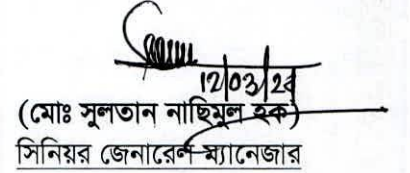 12/03/2৪
(মোঃ সুলতান নাছিমুল হক)
সিনিয়র জেনারেল ম্যানেজার